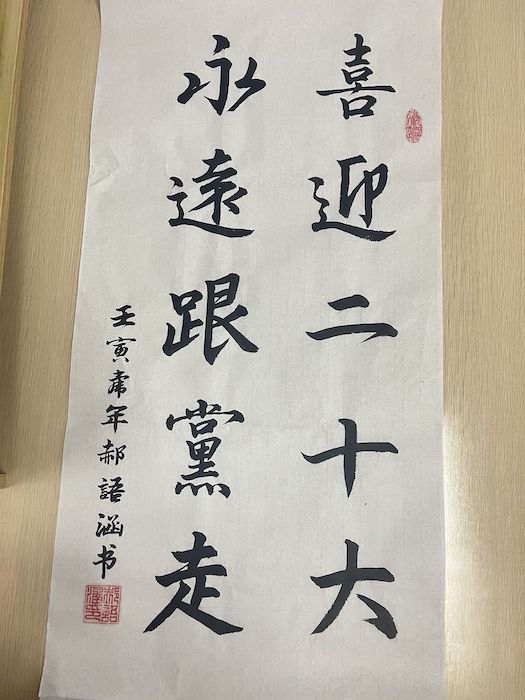 喜迎二十大
永遠跟黨走
壬寅虎年郝語涵书
郝語涵印